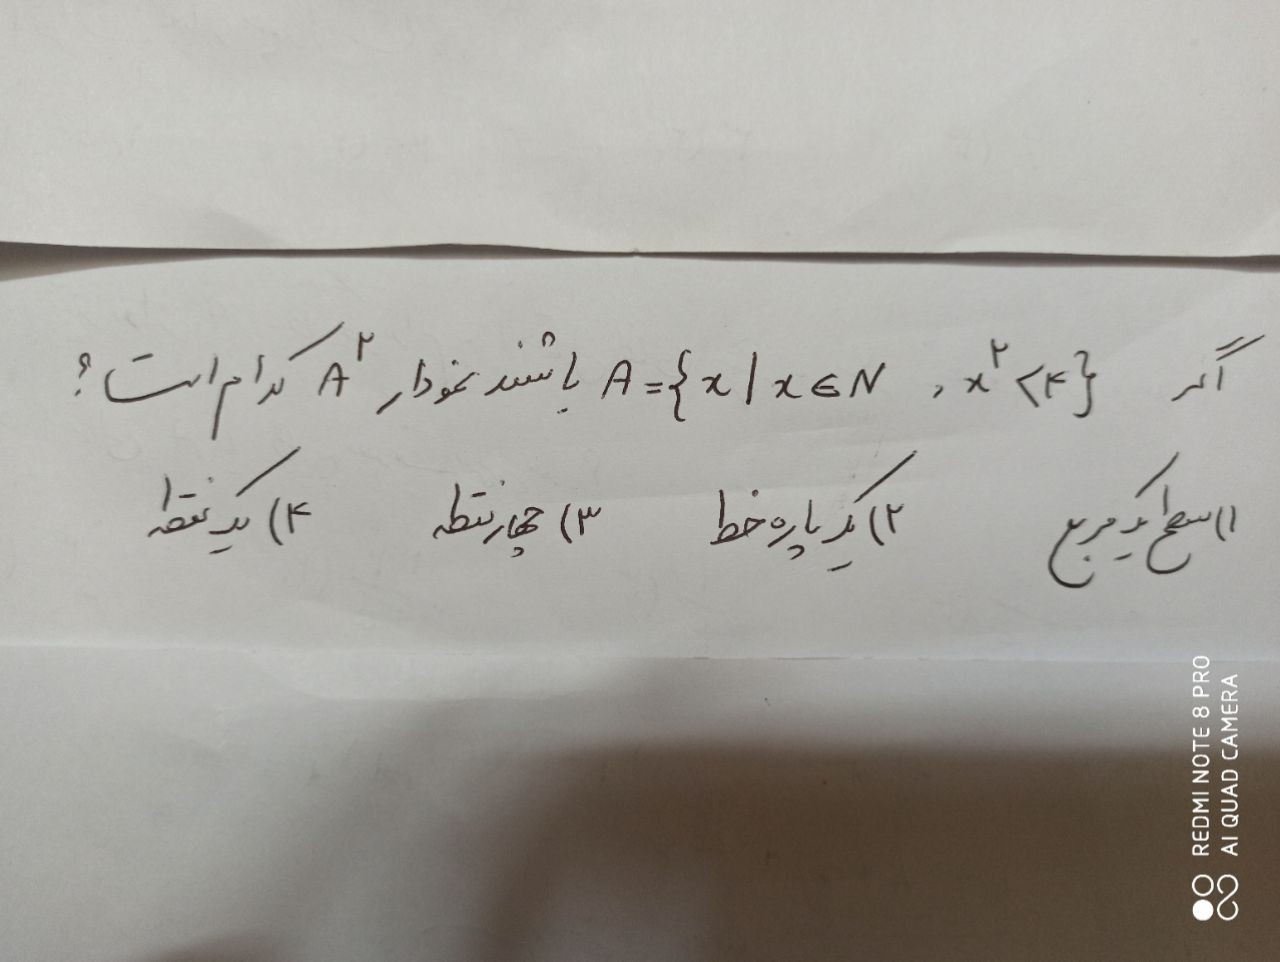 اگر A={x | x∈N , x²<۴} باشند نمودار A² کدام است؟
۱) سطح یک مربع ۲) یک پاره خط ۳) چهار نقطه ۴) یک نقطه
REDMI NOTE 8 PRO
AI QUAD CAMERA